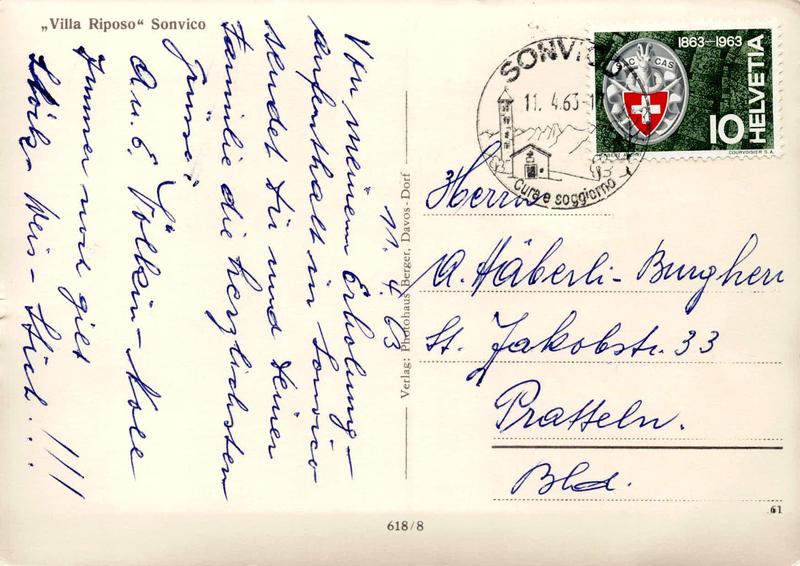 „Villa Riposo“ Sonvico
11. 4. 63
Von meinem Erholung-
aufenthalt in Sonvico
sendet Dir und Deiner
Familie die herzlichsten
Grüsse
A u. E.
Immer noch gilt
Stöck Weis - Stich!!!
Verlag: Photohaus Berger, Davos-Dorf
618/8
SONVICO
11. 4. 63-1
Cura e soggiorno
1863-1963
SAC CAS
HELVETIA
10
COURVOISIER S.A.
Herrn
A. Häberli-Burgherr
St. Jakobstr. 33
Pratteln.
Bld.
61